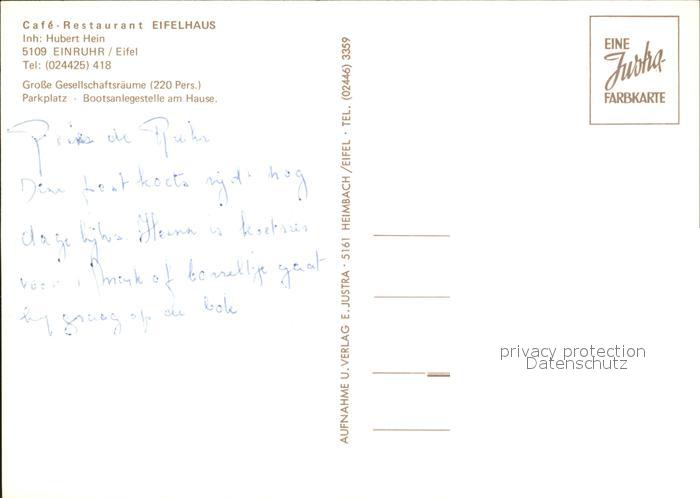 Café-Restaurant EIFELHAUS
Inh: Hubert Hein
5109 EINRUHR / Eifel
Tel: (024425) 418
Große Gesellschaftsräume (220 Pers.)
Parkplatz · Bootsanlegestelle am Hause.
de Ruhr
Deze postkoets rijdt nog
is koetsier
voor 1 mark of borreltje gaat
hij graag op de bok
AUFNAHME U. VERLAG E. JUSTRA · 5161 HEIMBACH/EIFEL · TEL. (02446) 3359
EINE
Justra-
FARBKARTE
privacy protection
Datenschutz